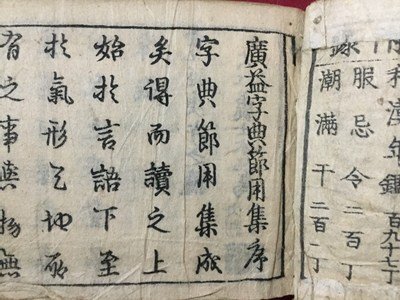 和漢年鑑百九十七丁
服忌令二百丁
潮満干二百一丁
廣益字典節用集序
字典節用集成
矣得而讀之上
始於言語下至
於氣形乞地所
有之事與物無